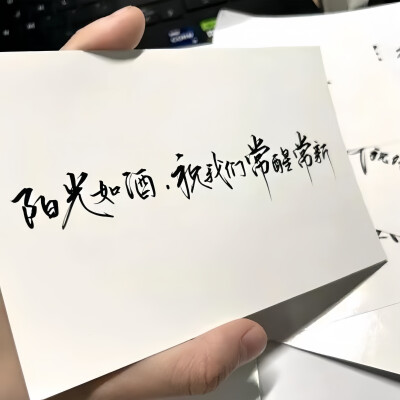 阳光如酒，祝我们常醒常新